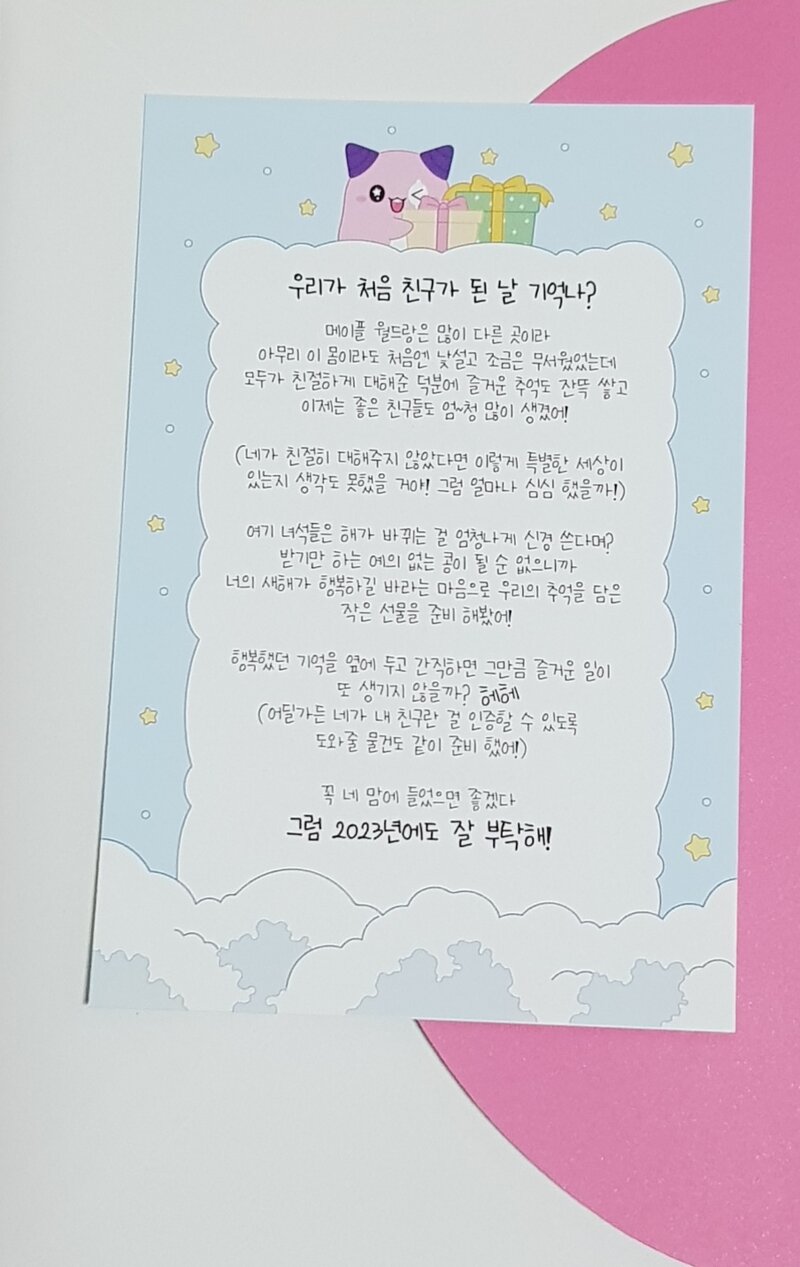 우리가 처음 친구가 된 날 기억나?
메이플 월드랑은 많이 다른 곳이라
아무리 이 몸이라도 처음엔 낯설고 조금은 무서웠었는데
모두가 친절하게 대해준 덕분에 즐거운 추억도 잔뜩 쌓고
이제는 좋은 친구들도 엄~청 많이 생겼어!
(네가 친절히 대해주지 않았다면 이렇게 특별한 세상이
있는지 생각도 못했을 거야! 그럼 얼마나 심심 했을까!)
여기 녀석들은 해가 바뀌는 걸 엄청나게 신경 쓴다며?
받기만 하는 예의 없는 콩이 될 순 없으니까
너의 새해가 행복하길 바라는 마음으로 우리의 추억을 담은
작은 선물을 준비 해봤어!
행복했던 기억을 옆에 두고 간직하면 그만큼 즐거운 일이
또 생기지 않을까? 헤헤
(어딜가든 네가 내 친구란 걸 인증할 수 있도록
도와줄 물건도 같이 준비 했어!)
꼭 네 맘에 들었으면 좋겠다
그럼 2023년에도 잘 부탁해!